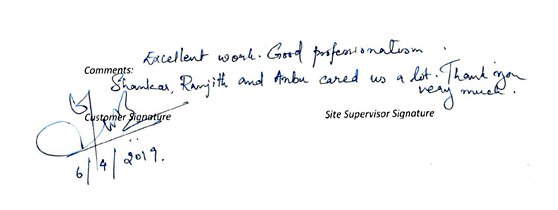 Excellent work. Good professionalism.
Comments:
Shankar, Ranjith and Anbu cared us a lot. Thank you
very much.
Customer Signature
Site Supervisor Signature
6/4/2019.